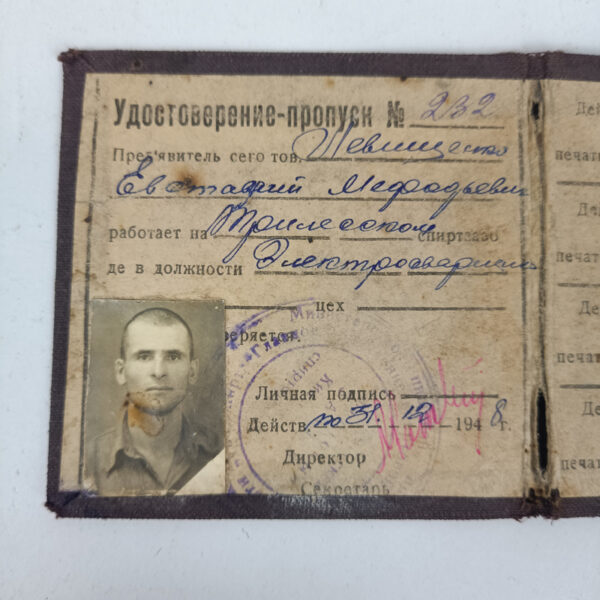 Удостоверение-пропуск № 232
Пред'явитель сего тов. Левищенко
Евстафий Мефодьевич
работает на Трилесском спиртзаво
де в должности Электросварщик
цех
веряется.
Личная подпись
Действ. по 31. 12 1948 г.
Директор
Секретарь
Дей
печати
Дей
печать
Де
печат
Де
печат